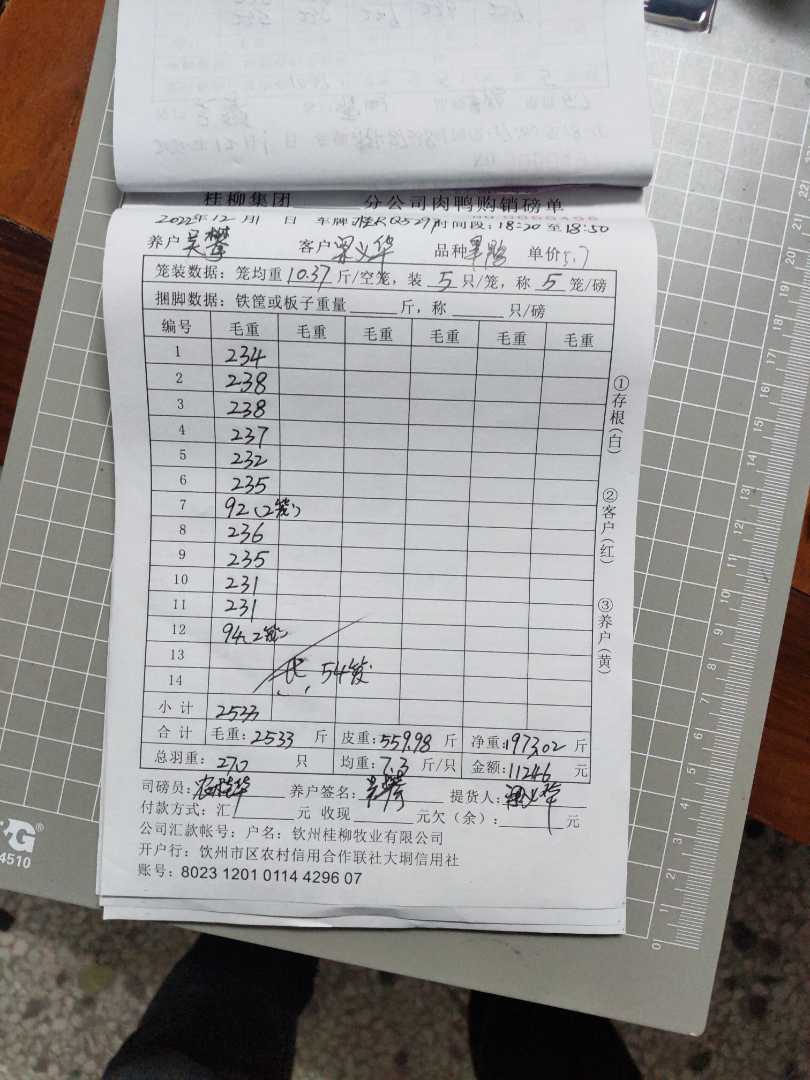 桂柳集团 分公司肉鸭购销磅单
2022年12月11日 车牌 桂R0529 时间段:18:20至18:50
养户 吴攀 客户 梁义华 品种 单价5.7
笼装数据:笼均重10.37斤/空笼,装5只/笼,称5笼/磅
捆脚数据:铁筐或板子重量 斤,称 只/磅
编号 毛重 毛重 毛重 毛重 毛重 毛重
1 234
2 238
3 238
4 237
5 232
6 235
7 92(2笼)
8 236
9 235
10 231
11 231
12 94(2笼)
13
14 54笼
小计 2533
合计 毛重:2533斤 皮重:559.98斤 净重:1973.02斤
总羽重:270只 均重:7.3斤/只 金额:11246元
司磅员: 养户签名: 吴攀 提货人: 梁义华
付款方式:汇 元 收现 元欠(余): 元
公司汇款帐号:户名:钦州桂柳牧业有限公司
开户行:钦州市区农村信用合作联社大垌信用社
账号:8023 1201 0114 4296 07
①存根(白)
②客户(红)
③养户(黄)
4510
0 1 2 3 4 5 6 7 8 9 10 11 12 13 14 15 16 17 18